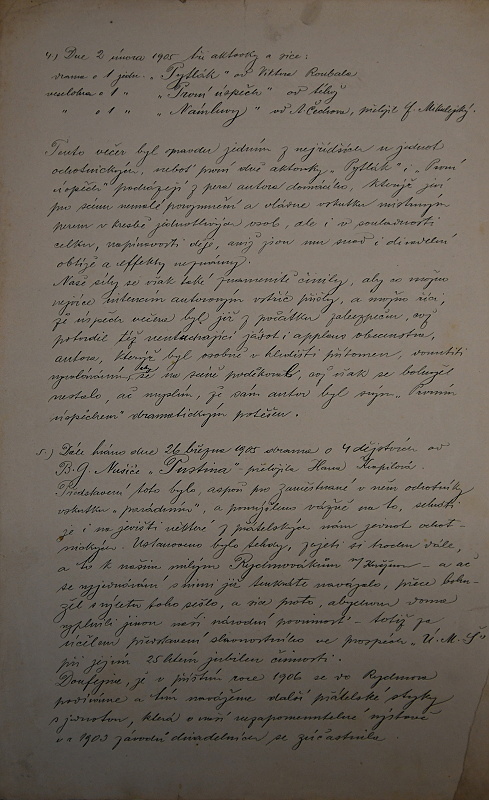 4.) Dne 2 února 1905 tři aktovky a sice:
drama o 1 jedn. „Pytlák“ od Viktora Roubala
veselohra o 1 „ „První úspěch“ od téhož
„ o 1 „ „Námluvy“ od A. Čechova, přeložil
Tento večer byl opravdu jedním z nejřidších u jednot
ochotnických, neboť první dvě aktovky „Pytlák“ i „První
úspěch“ pocházejí z pera autora domácího, kterýž již
pro scenu nemalé porozumění a vládne vskutku mistrným
perem v kresbě jednotlivých osob, ale i v souladnosti
celku, napínavosti děje, aniž jsou mu snad i divadelní
obtíže a effekty neznámy.
Naše síly se však také znamenitě činily, aby co možno
nejvíce intencím autorovým vstříc přišly, a možno říci,
že úspěch večera byl již z počátku zabezpečen, což
potvrdil též neutuchající jásot i applaus obecenstva,
autora, kterýž byl osobně v hledišti přítomen,
vyvoláním, aby se na scéně poděkoval, což však se bohužel
nestalo, ač myslím, že sám autor byl svým „Prvním
úspěchem“ dramatickým potěšen.
5.) Dále hráno dne 26 března 1905 drama o 4 dějstvích od
B. G. Nušiće „Pustina“ – přeložila Hana Kvapilová.
Představení toto bylo, aspoň pro zaměstnané v něm ochotníky
vskutku „parádním“, a pomýšleno vážně na to, sehráti
je i na jevišti některé z přátelských nám jednot ochot-
nických. Ustanoveno bylo tehdy, zajeti si trochu dále,
a to k našim milým Rychnovákům n/Kněžnou – a ač
se vyjednávání s nimi již tenkráte navázalo, přece bohu-
žel s výletu toho sešlo, a sice proto, abychom doma
vyplnili jinou naši národní povinnost – totiž za
účelem představení slavnostního ve prospěch „Ú. M. Š“
při jejím 25 letém jubileu činnosti.
Doufejme, že v příštím roce 1906 se do Rychnova
podíváme a tím navážeme další přátelské styky
s jednotou, která o naší nezapomenutelné výstavě
v r 1903 závodů divadelních se zúčastnila.